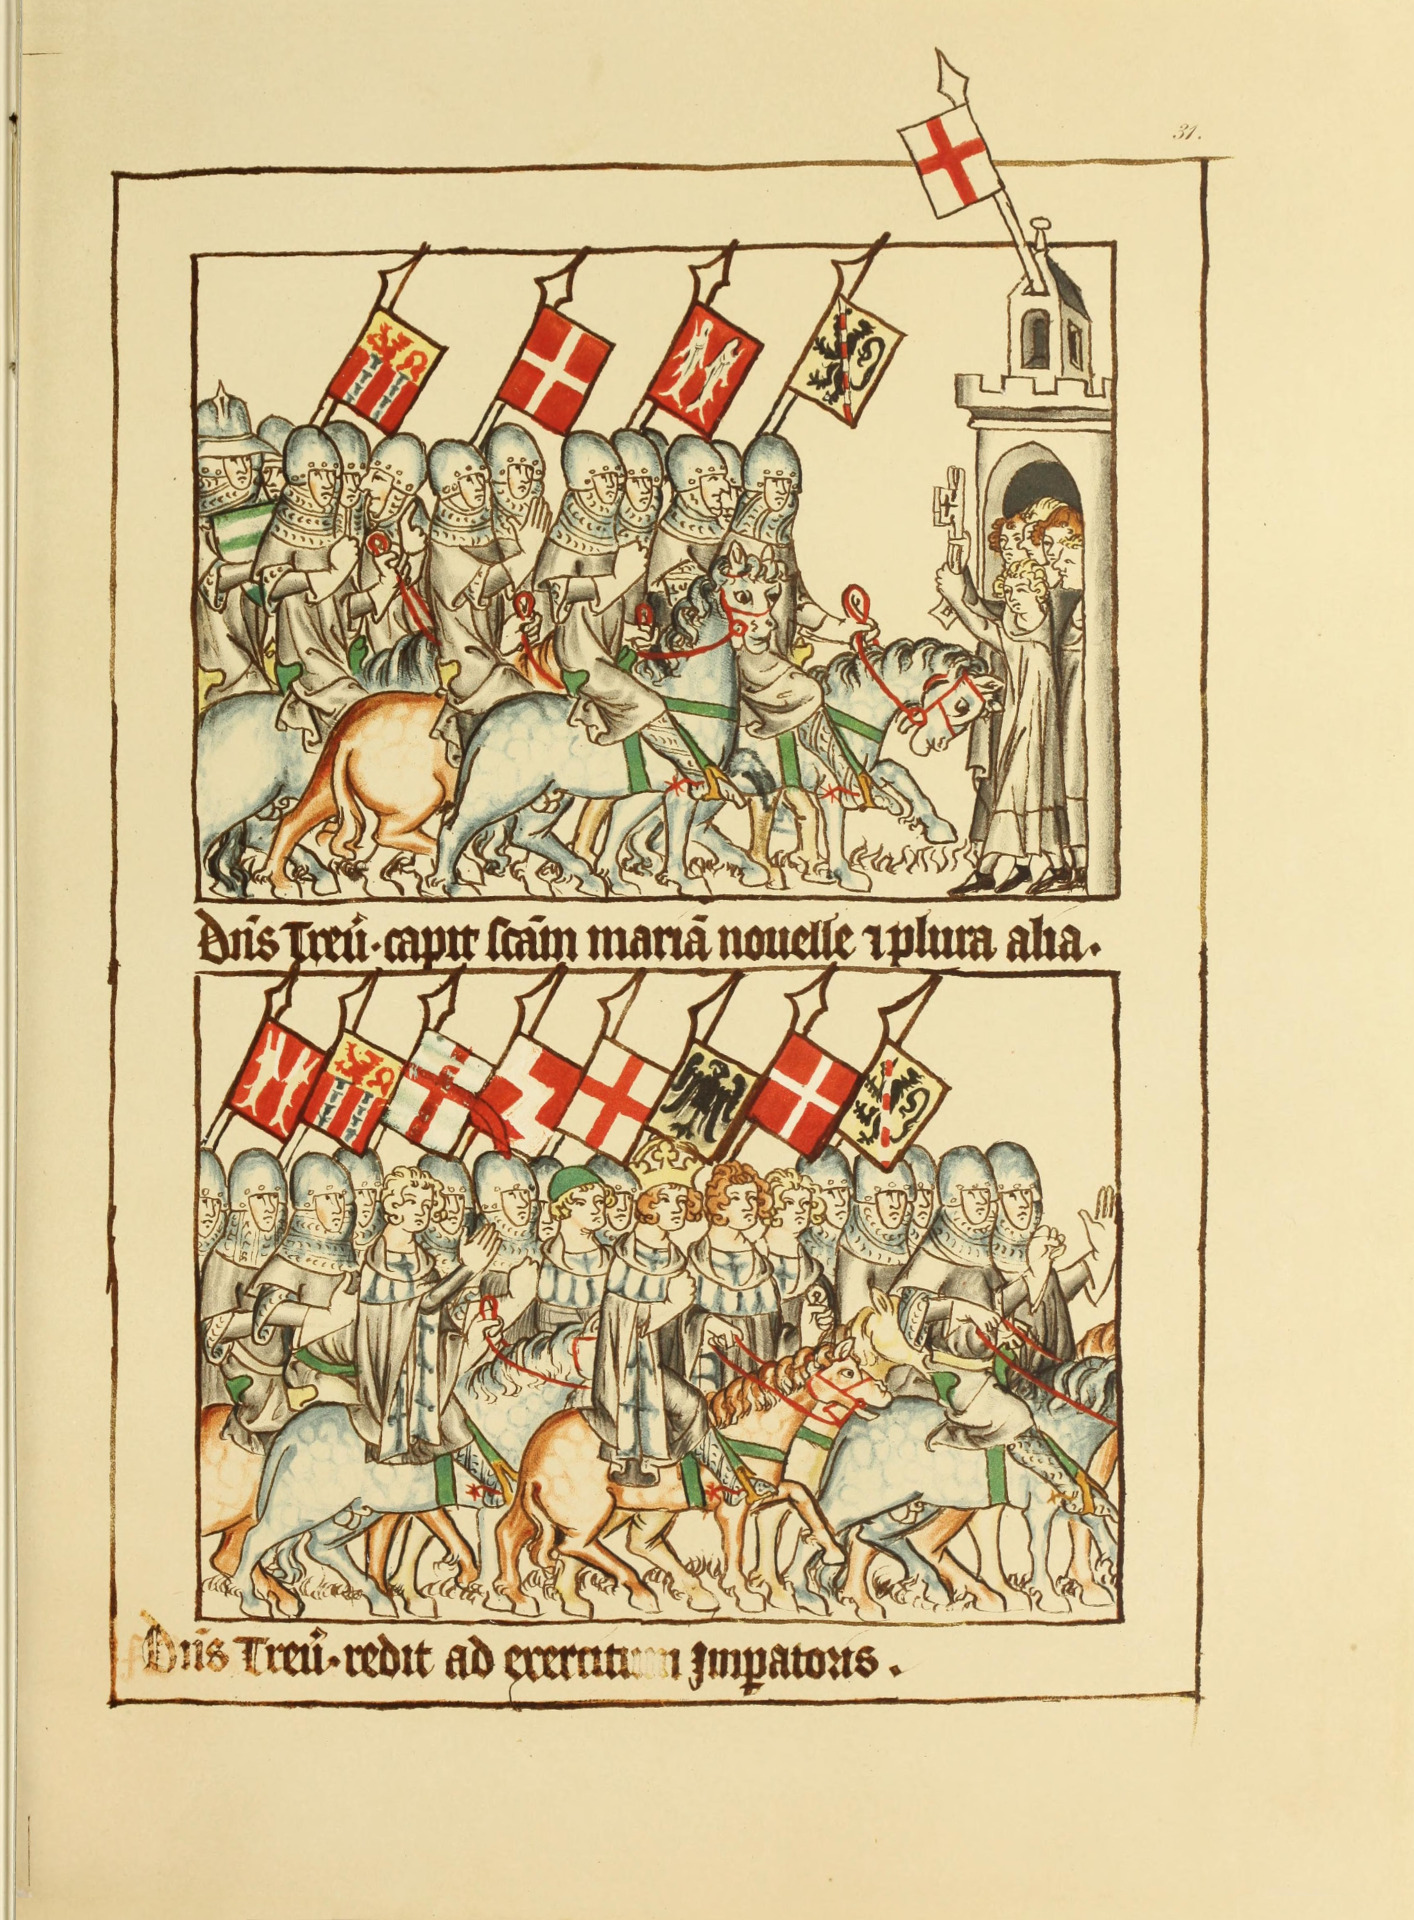 31.
Dn̄s Treū̓. capit sc̄am mariā nouelle ⁊ plura alia.
Dn̄s Treū̓. redit ad exercitum Imꝑatoris.